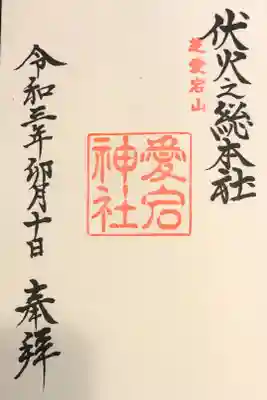 伏火之総本社
芝愛宕山
愛宕
神社
令和三年卯月十日
奉拝